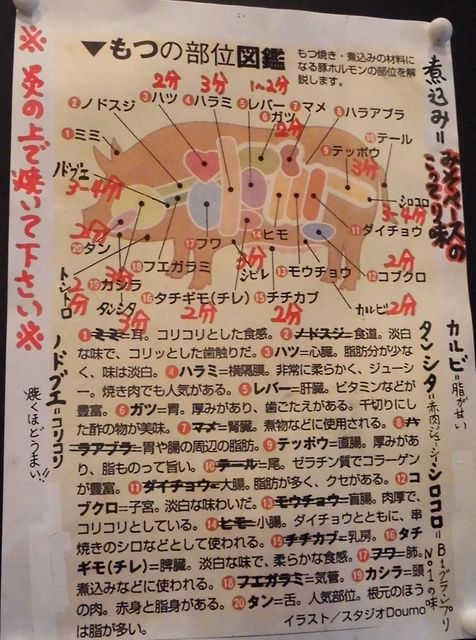 ▼もつの部位図鑑
もつ焼き・煮込みの材料に
なる豚ホルモンの部位を解
説します。
※炎の上で焼いて下さい※
煮込み=みそベースの
こってり味
①ミミ
②ノドスジ
③ハツ
2分
④ハラミ
3分
⑤レバー
1〜2分
⑥ガツ
2分
⑦マメ
⑧ハラアブラ
⑨テッポウ
3分
⑩テール
シロコロ
3〜4分
⑪ダイチョウ
⑫コブクロ
2分
⑬モウチョウ
⑭ヒモ
⑮チチカブ
2分
⑯タチギモ(チレ)
2分
⑰フワ
⑱フエガラミ
⑲カシラ
3分
⑳タン
2分
ノドブエ
3〜4分
トントロ
2分
タンシタ
3分
シビレ
3分
カルビ
2分
①ミミ=耳。コリコリとした食感。②ノドスジ=食道。淡白
な味で、コリッとした歯触りだ。③ハツ=心臓。脂肪分が少な
く、味は淡白。④ハラミ=横隔膜。非常に柔らかく、ジューシ
ー。焼き肉でも人気がある。⑤レバー=肝臓。ビタミンなどが
豊富。⑥ガツ=胃。厚みがあり、歯ごたえがある。千切りにし
た酢の物が美味。⑦マメ=腎臓。煮物などに使用される。⑧ハ
ラアブラ=胃や腸の周辺の脂肪。⑨テッポウ=直腸。厚みがあ
り、脂ものって旨い。⑩テール=尾。ゼラチン質でコラーゲン
が豊富。⑪ダイチョウ=大腸。脂肪が多く、クセがある。⑫コ
ブクロ=子宮。淡白な味わいだ。⑬モウチョウ=盲腸。肉厚で、
コリコリとしている。⑭ヒモ=小腸。ダイチョウとともに、串
焼きのシロなどとして使われる。⑮チチカブ=乳房。⑯タチ
ギモ(チレ)=脾臓。淡白な味で、柔らかな食感。⑰フワ=肺。
煮込みなどに使われる。⑱フエガラミ=気管。⑲カシラ=頭
の肉。赤身と脂身がある。⑳タン=舌。人気部位。根元のほう
は脂が多い。
イラスト/スタジオDoumo
ノドブエ=コリコリ
焼くほどうまい!!
カルビ=脂が甘い
タンシタ=赤肉ジューシー
シロコロ=B1グランプリ
No1の味